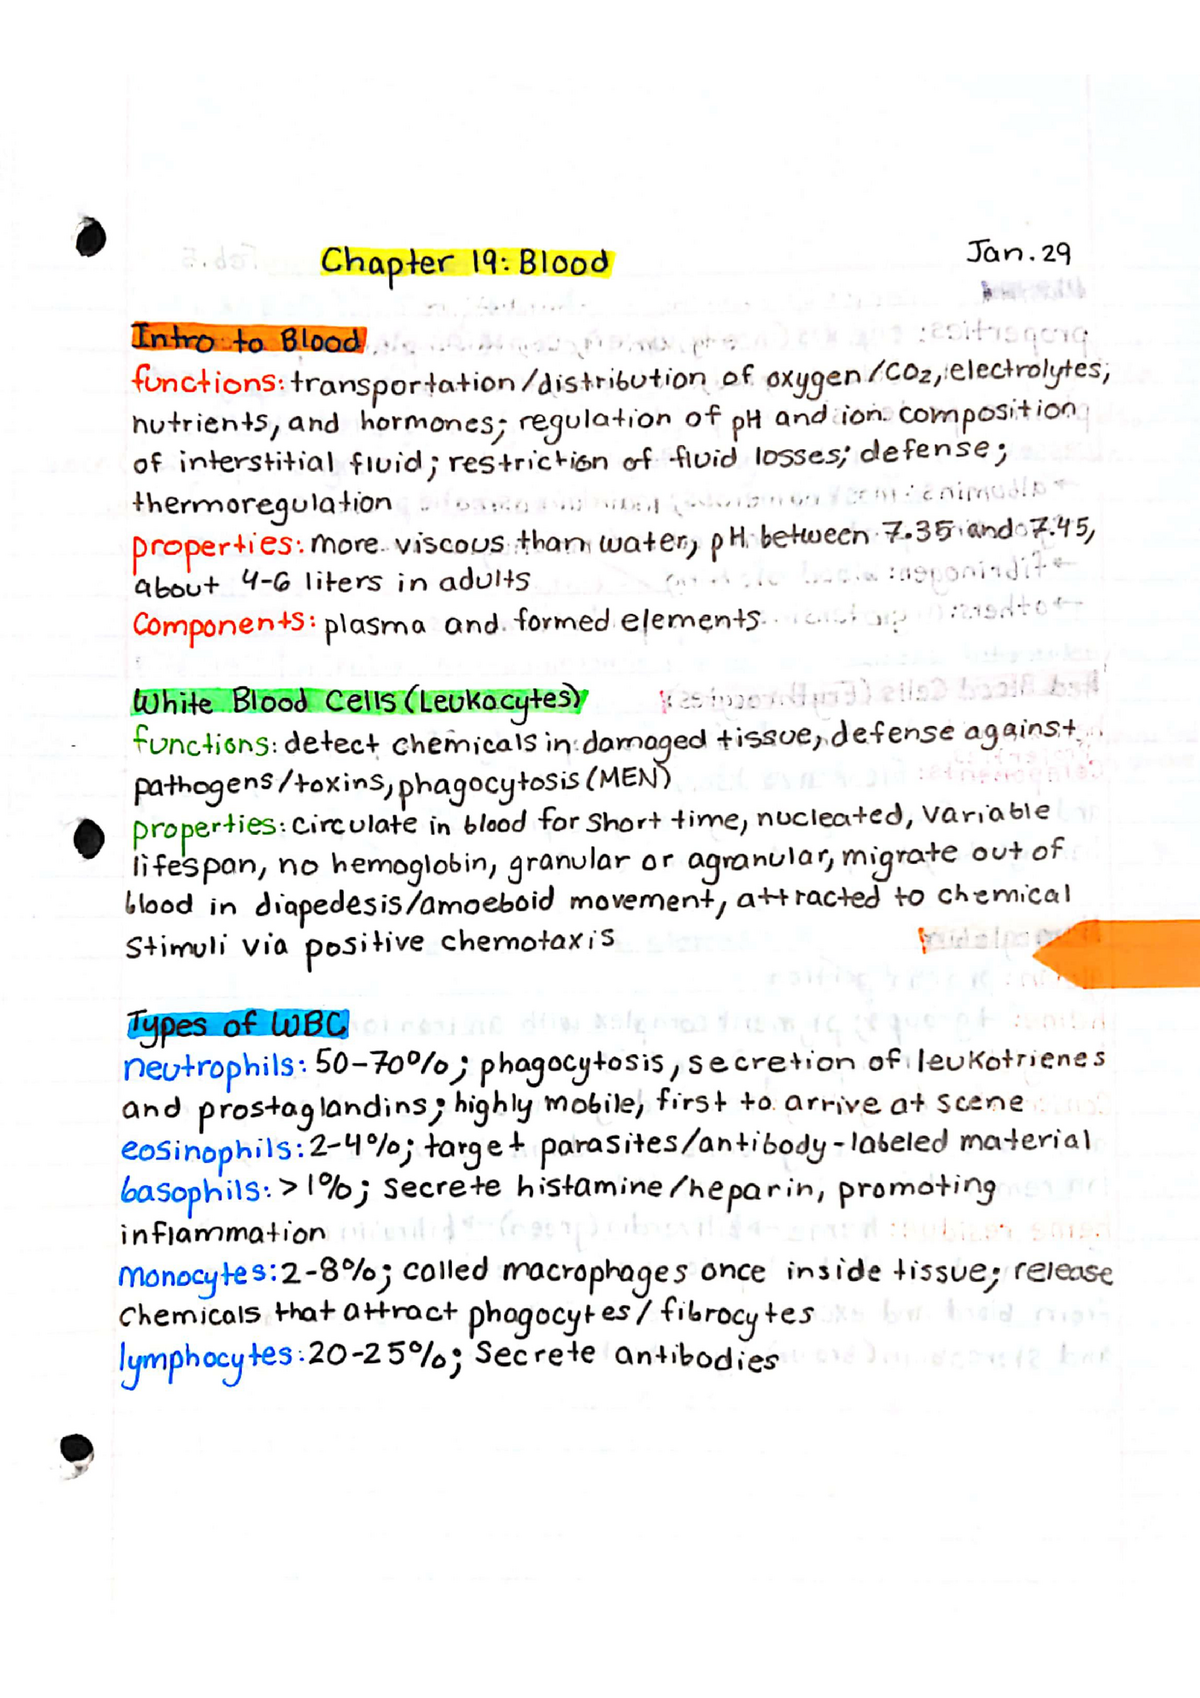 Chapter 19: Blood
Jan. 29
Intro to Blood
functions: transportation/distribution of oxygen/CO2, electrolytes,
nutrients, and hormones; regulation of pH and ion composition
of interstitial fluid; restriction of fluid losses; defense;
thermoregulation
properties: more viscous than water, pH between 7.35 and 7.45,
about 4-6 liters in adults
Components: plasma and formed elements
White Blood Cells (Leukocytes)
functions: detect chemicals in damaged tissue, defense against
pathogens/toxins, phagocytosis (MEN)
properties: circulate in blood for short time, nucleated, variable
lifespan, no hemoglobin, granular or agranular, migrate out of
blood in diapedesis/amoeboid movement, attracted to chemical
Stimuli via positive chemotaxis
Types of WBC
neutrophils: 50-70%; phagocytosis, secretion of leukotrienes
and prostaglandins; highly mobile, first to arrive at scene
eosinophils: 2-4%; target parasites/antibody-labeled material
basophils: >1%; Secrete histamine/heparin, promoting
inflammation
monocytes: 2-8%; called macrophages once inside tissue; release
chemicals that attract phagocytes/fibrocytes
lymphocytes: 20-25%; Secrete antibodies